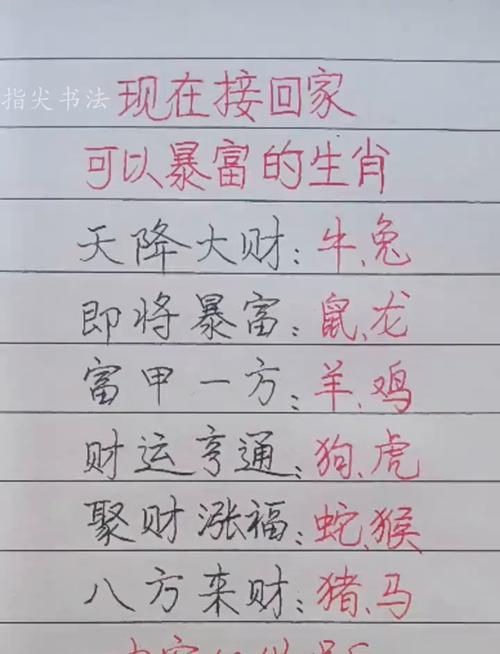 指尖书法
现在接回家
可以暴富的生肖
天降大财:牛、兔
即将暴富:鼠、龙
富甲一方:羊、鸡
财运亨通:狗、虎
聚财涨福:蛇、猴
八方来财:猪、马